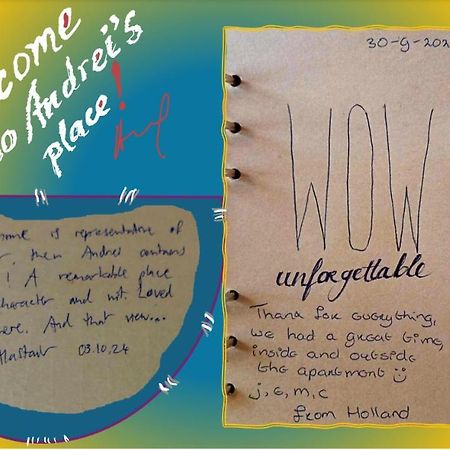 come
to Andrei's
place!
ome is representative of
, then Andrei contains
! A remarkable place
character and wit. Loved
ere. And that view...
Alastair 03.10.24
30-9-202
WOW
unforgettable
Thank for everything,
we had a great time,
inside and outside
the apartment
j, e, m, c
from Holland